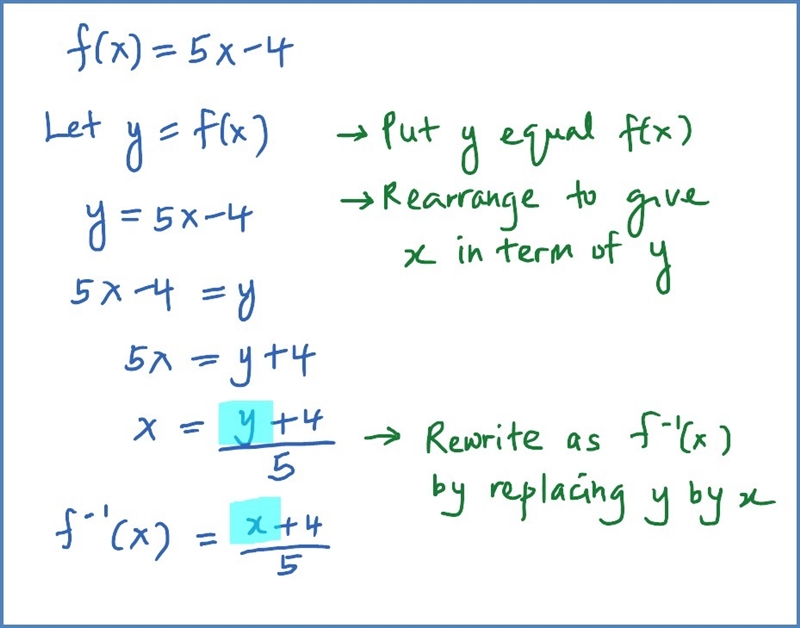 f(x) = 5x-4
Let y = f(x) → Put y equal f(x)
y = 5x-4 → Rearrange to give
x in term of y
5x-4 = y
5x = y+4
x = y+4/5 → Rewrite as f⁻¹(x)
by replacing y by x
f⁻¹(x) = x+4/5